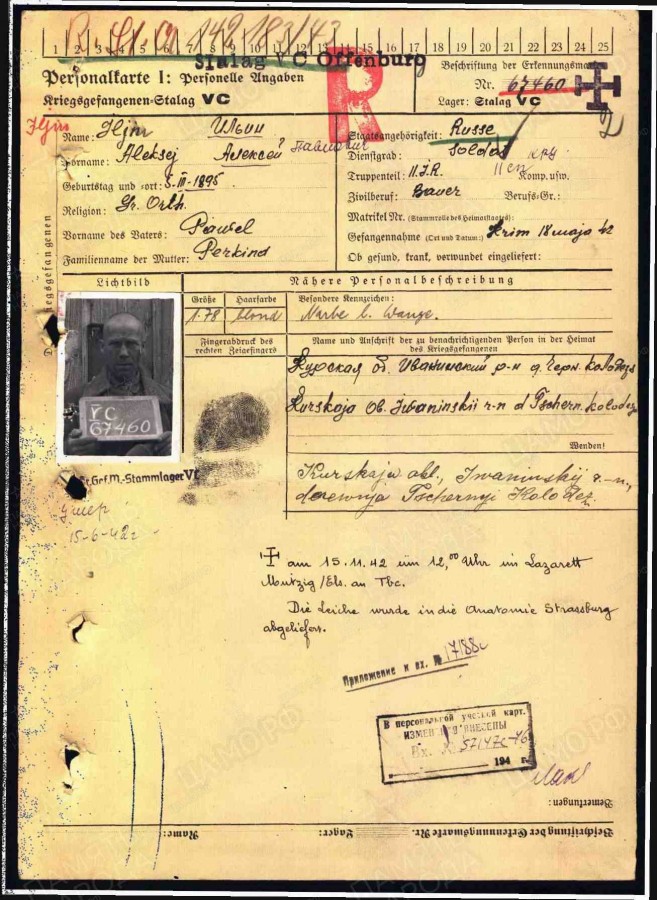 R. St. O. 142 183/43
1 2 3 4 5 6 7 8 9 10 11 12 13 14 15 16 17 18 19 20 21 22 23 24 25
Stalag V C Offenburg
R
Personalkarte I: Personelle Angaben
Kriegsgefangenen-Stalag V C
Beschriftung der Erkennungsmarke
Nr. 67460
Lager: Stalag V C
Iljin
Name: Iljin Ильин
Vorname: Aleksej Алексей Павлович
Geburtstag und -ort: 5.III-1895
Religion: Gr. Orth.
Vorname des Vaters: Pawel
Familienname der Mutter: Perkind
Staatsangehörigkeit: Russe
Dienstgrad: Soldat
Truppenteil: 11.J.R. Komp. usw.
Zivilberuf: Bauer Berufs-Gr.:
Matrikel Nr. (Stammrolle des Heimatstaates):
Gefangennahme (Ort und Datum): Krim 18 maja 42
Ob gesund, krank, verwundet eingeliefert:
Lichtbild
Nähere Personalbeschreibung
Größe Haarfarbe Besondere Kennzeichen:
1.78 blond Narbe l. Wange.
Fingerabdruck des
rechten Zeigefingers
Name und Anschrift der zu benachrichtigenden Person in der Heimat
des Kriegsgefangenen
Курская об. Иванинский р-н д. Черн. колодез
Kurskaja Ob. Iwaninskii r-n d Tschern. kolodez
Wenden!
VC
67460
Kr.Gef.M.-Stammlager V C
Kurskaja obl., Iwaninskij r.-n.,
derewnja Tschernyi Kolodez.
умер
15-6-42г
am 15.11.42 um 12,00 Uhr im Lazarett
Mutzig/Els. an Tbc.
Die Leiche wurde in die Anatomie Strassburg
abgeliefert.
Приложение к вх. № 17188с
В персональной учетной карт.
ИЗМЕНЕНИЯ ВНЕСЕНЫ
Вх. № 57147с-46
194 г.
Bemerkungen:
Name: Lager: Beschriftung der Erkennungsmarke Nr.